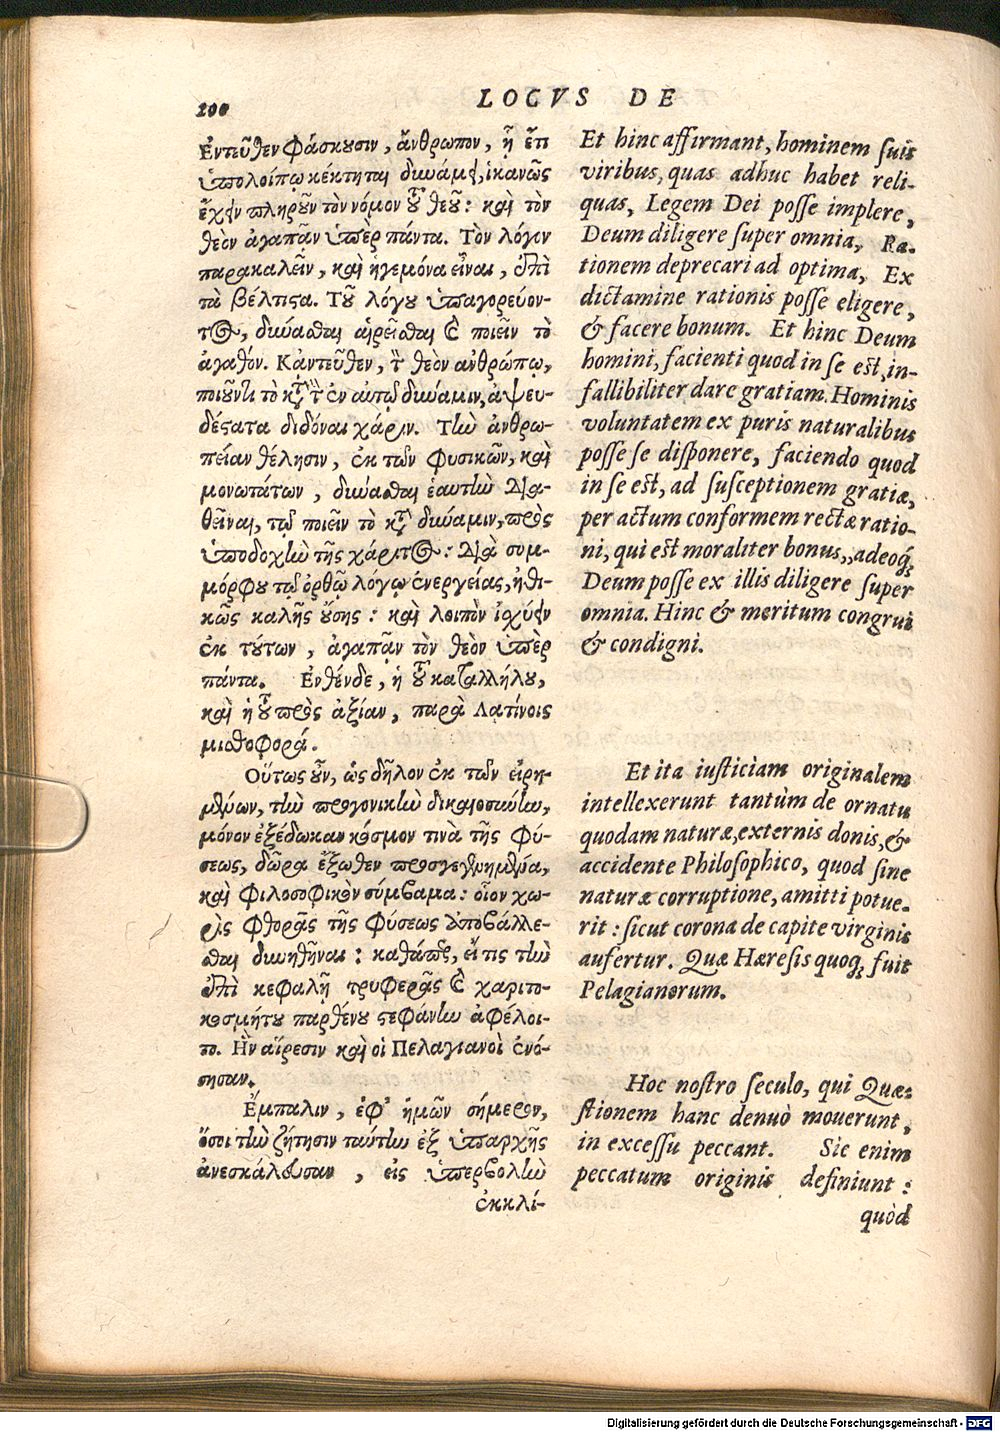 200
LOCVS DE
Ἐντεῦθεν φάσκουσιν, ἄνθρωπον, ᾗ ἔτι
ὑπολοίπῳ κέκτηται δυνάμει, ἱκανῶς
ἔχειν πληροῦν τὸν νόμον τοῦ θεοῦ: καὶ τὸν
θεὸν ἀγαπᾶν ὑπὲρ πάντα. Τὸν λόγον
παρακαλεῖν, καὶ ἡγεμόνα εἶναι, ἐπὶ
τὰ βέλτιστα. Τοῦ λόγου ὑπαγορεύον-
τος, δύνασθαι αἱρεῖσθαι καὶ ποιεῖν τὸ
ἀγαθόν. Κἀντεῦθεν, τὸν θεὸν ἀνθρώπῳ,
ποιοῦντι τὸ κατὰ τὴν ἐν αὐτῷ δύναμιν, ἀψευ-
δέστατα διδόναι χάριν. Τὴν ἀνθρω-
πείαν θέλησιν, ἐκ τῶν φυσικῶν, καὶ
μονωτάτων, δύνασθαι ἑαυτὴν δια-
θεῖναι, τῷ ποιεῖν τὸ κατὰ δύναμιν, πρὸς
ὑποδοχὴν τῆς χάριτος: διὰ συμ-
μόρφου τῷ ὀρθῷ λόγῳ ἐνεργείας, ἠθι-
κῶς καλῆς οὔσης: καὶ λοιπὸν ἰσχύειν
ἐκ τούτων, ἀγαπᾶν τὸν θεὸν ὑπὲρ
πάντα. Ἐνθένδε, ἡ τοῦ καταλλήλου,
καὶ ἡ τοῦ πρὸς ἀξίαν, παρὰ Λατίνοις
μισθοφορά.
Οὕτως οὖν, ὡς δῆλον ἐκ τῶν εἰρη-
μένων, τὴν προγονικὴν δικαιοσύνην,
μόνον ἐξέδωκαν κόσμον τινὰ τῆς φύ-
σεως, δῶρα ἔξωθεν προσγεγενημένα,
καὶ φιλοσοφικὸν σύμβαμα: οἷον χω-
ρὶς φθορᾶς τῆς φύσεως ἀποβάλλε-
σθαι δυνηθῆναι: καθάπερ, εἴ τις τὴν
ἐπὶ κεφαλῇ τρυφερᾶς καὶ χαριτο-
κοσμήτου παρθένου στεφάνην ἀφέλοι-
το. Ἣν αἵρεσιν καὶ οἱ Πελαγιανοὶ ἐνό-
σησαν.
Ἔμπαλιν, ἐφ' ἡμῶν σήμερον,
ὅσοι τὴν ζήτησιν ταύτην ἐξ ὑπαρχῆς
ἀνεσκάλευσαν, εἰς ὑπερβολὴν
ἐκκλί-
Et hinc affirmant, hominem suis
viribus, quas adhuc habet reli-
quas, Legem Dei posse implere,
Deum diligere super omnia, Ra-
tionem deprecari ad optima, Ex
dictamine rationis posse eligere,
& facere bonum. Et hinc Deum
homini, facienti quod in se est, in-
fallibiliter dare gratiam. Hominis
voluntatem ex puris naturalibus
posse se disponere, faciendo quod
in se est, ad susceptionem gratiæ,
per actum conformem rectæ ratio-
ni, qui est moraliter bonus,, adeoq́;
Deum posse ex illis diligere super
omnia. Hinc & meritum congrui
& condigni.
Et ita iusticiam originalem
intellexerunt tantùm de ornatu
quodam naturæ, externis donis, &
accidente Philosophico, quod sine
naturæ corruptione, amitti potue-
rit: sicut corona de capite virginis
aufertur. Quæ Hæresis quoq; fuit
Pelagianorum.
Hoc nostro seculo, qui Quæ-
stionem hanc denuò mouerunt,
in excessu peccant. Sic enim
peccatum originis definiunt:
quòd
Digitalisierung gefördert durch die Deutsche Forschungsgemeinschaft - DFG